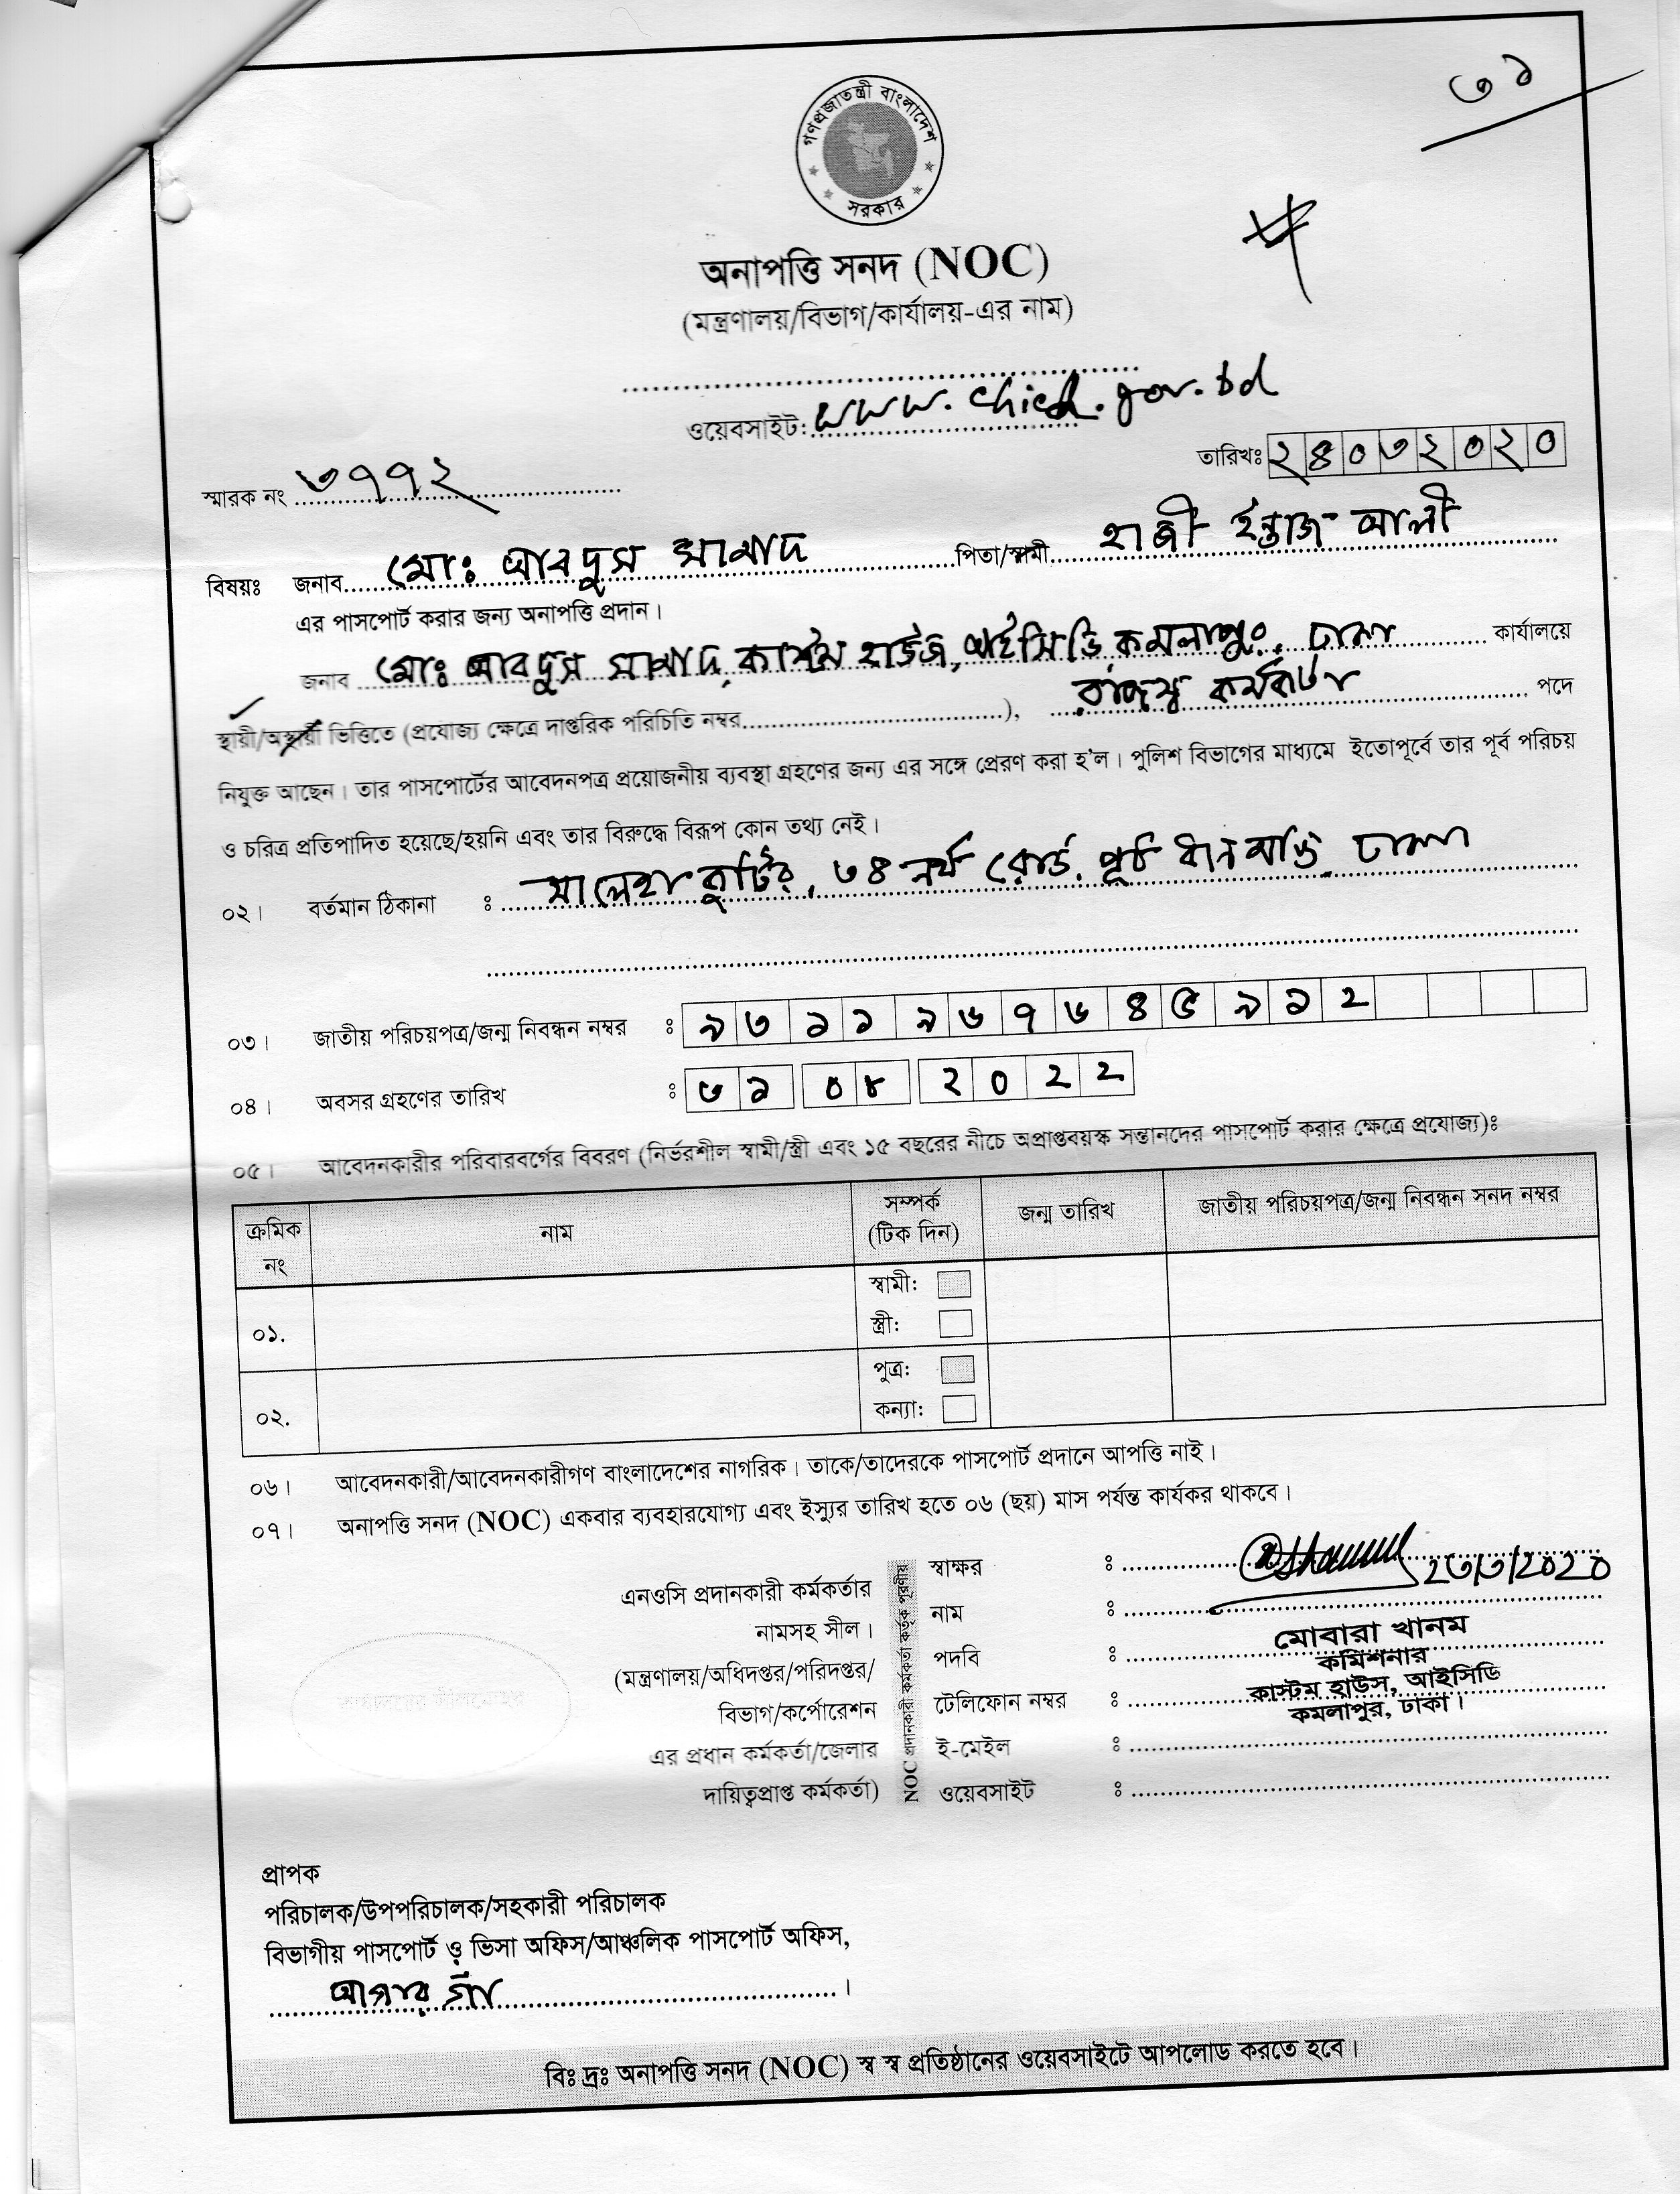 ৩১
গণপ্রজাতন্ত্রী বাংলাদেশ
সরকার
অনাপত্তি সনদ (NOC)
(মন্ত্রণালয়/বিভাগ/কার্যালয়-এর নাম)
ওয়েবসাইট: www.chicd.gov.bd
তারিখঃ ২৪০৩২০২০
স্মারক নং ৩৭৭২
বিষয়ঃ জনাব মোঃ আবদুস সামাদ পিতা/স্বামী হাজী ইন্তাজ আলী
এর পাসপোর্ট করার জন্য অনাপত্তি প্রদান।
জনাব মোঃ আবদুস সামাদ, কাস্টম হাউজ, আইসিডি, কমলাপুর, ঢাকা কার্যালয়ে
স্থায়ী/অস্থায়ী ভিত্তিতে (প্রযোজ্য ক্ষেত্রে দাপ্তরিক পরিচিতি নম্বর), রাজস্ব কর্মকর্তা পদে
নিযুক্ত আছেন। তার পাসপোর্টের আবেদনপত্র প্রয়োজনীয় ব্যবস্থা গ্রহণের জন্য এর সঙ্গে প্রেরণ করা হ'ল। পুলিশ বিভাগের মাধ্যমে ইতোপূর্বে তার পূর্ব পরিচয়
ও চরিত্র প্রতিপাদিত হয়েছে/হয়নি এবং তার বিরুদ্ধে বিরূপ কোন তথ্য নেই।
০২। বর্তমান ঠিকানা ঃ সালেহা কুটির, ৩৪ নর্থ রোড, পূর্ব ধানমন্ডি, ঢাকা
০৩। জাতীয় পরিচয়পত্র/জন্ম নিবন্ধন নম্বর ঃ ৯৩১১৯৬৭৬৪৫৯১২
০৪। অবসর গ্রহণের তারিখ ঃ ৩১ ০৮ ২০২২
০৫। আবেদনকারীর পরিবারবর্গের বিবরণ (নির্ভরশীল স্বামী/স্ত্রী এবং ১৫ বছরের নীচে অপ্রাপ্তবয়স্ক সন্তানদের পাসপোর্ট করার ক্ষেত্রে প্রযোজ্য)ঃ
ক্রমিক নং নাম সম্পর্ক (টিক দিন) জন্ম তারিখ জাতীয় পরিচয়পত্র/জন্ম নিবন্ধন সনদ নম্বর
স্বামী:
০১. স্ত্রী:
পুত্র:
০২. কন্যা:
০৬। আবেদনকারী/আবেদনকারীগণ বাংলাদেশের নাগরিক। তাকে/তাদেরকে পাসপোর্ট প্রদানে আপত্তি নাই।
০৭। অনাপত্তি সনদ (NOC) একবার ব্যবহারযোগ্য এবং ইস্যুর তারিখ হতে ০৬ (ছয়) মাস পর্যন্ত কার্যকর থাকবে।
এনওসি প্রদানকারী কর্মকর্তার
নামসহ সীল।
(মন্ত্রণালয়/অধিদপ্তর/পরিদপ্তর/
বিভাগ/কর্পোরেশন
এর প্রধান কর্মকর্তা/জেলার
দায়িত্বপ্রাপ্ত কর্মকর্তা)
NOC প্রদানকারী কর্মকর্তা কর্তৃক পূরণীয়
স্বাক্ষর ঃ ২৩/৩/2020
নাম ঃ
পদবি ঃ
টেলিফোন নম্বর ঃ
ই-মেইল ঃ
ওয়েবসাইট ঃ
মোবারা খানম
কমিশনার
কাস্টম হাউস, আইসিডি
কমলাপুর, ঢাকা।
প্রাপক
পরিচালক/উপপরিচালক/সহকারী পরিচালক
বিভাগীয় পাসপোর্ট ও ভিসা অফিস/আঞ্চলিক পাসপোর্ট অফিস,
আগারগাঁ।
বিঃ দ্রঃ অনাপত্তি সনদ (NOC) স্ব স্ব প্রতিষ্ঠানের ওয়েবসাইটে আপলোড করতে হবে।